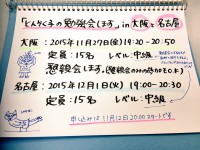 「とんちく子の勉強会します。」in 大阪と名古屋
大阪：2015年11月27日(金)19:20-20:50
定員：15名 レベル:中級
懇親会します。(懇親会のみの参加もOK♪)
名古屋：2015年12月1日(火)19:00-20:30
定員：15名 レベル:中級
申し込みは11月12日20:00スタートです